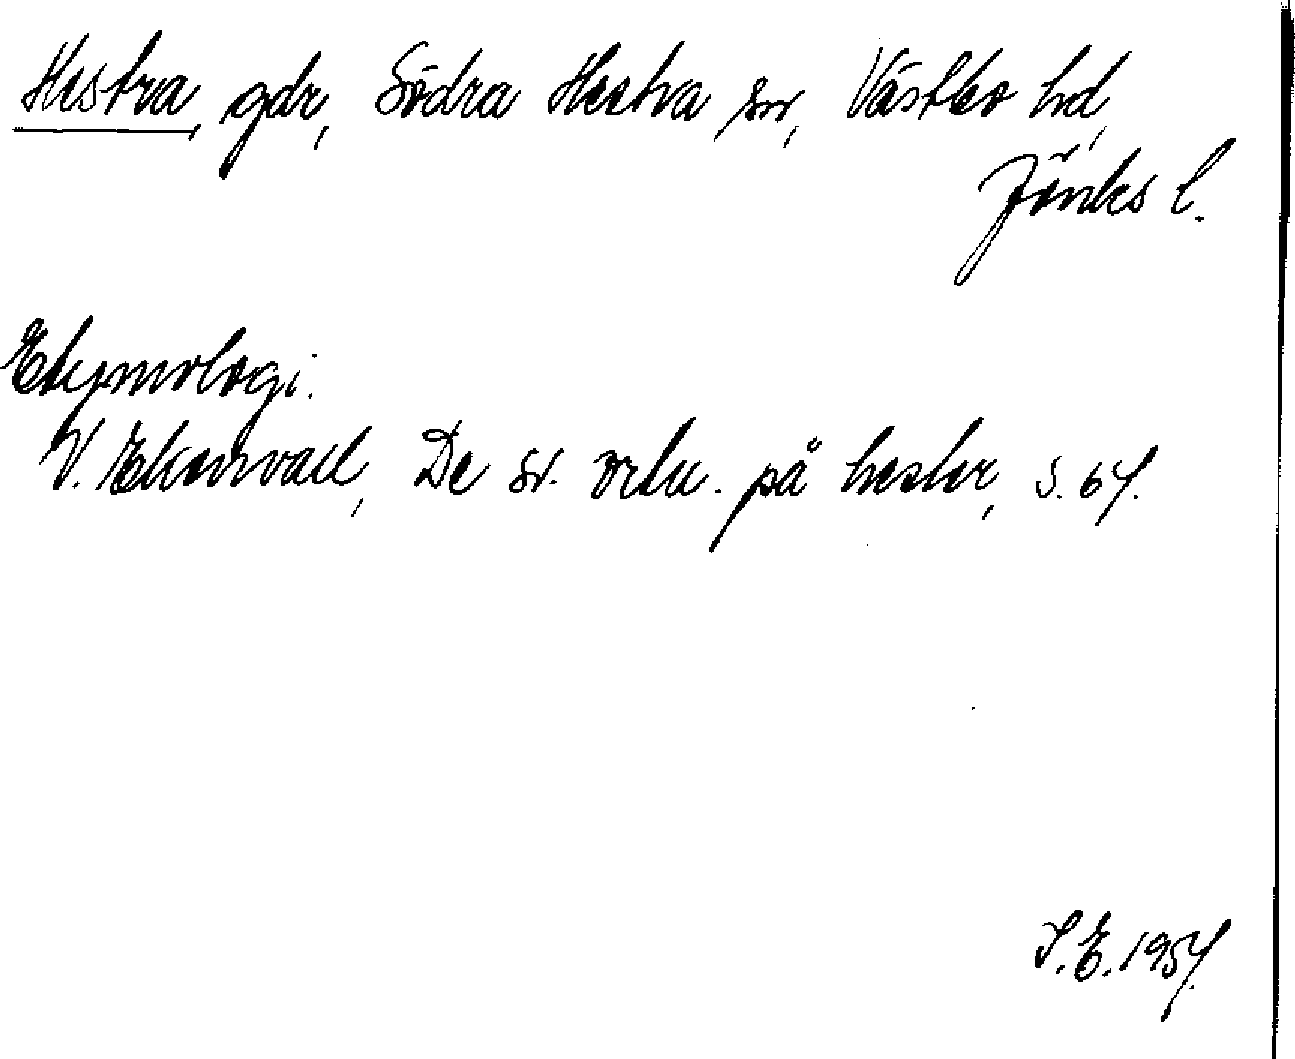 Hestra, gdr, Södra Hestra sn, Västbo hd,
Jönks l.
Etymologi.
V. Ekenvall, De sv. ortn. på hester, s. 67.
S.E. 1957.